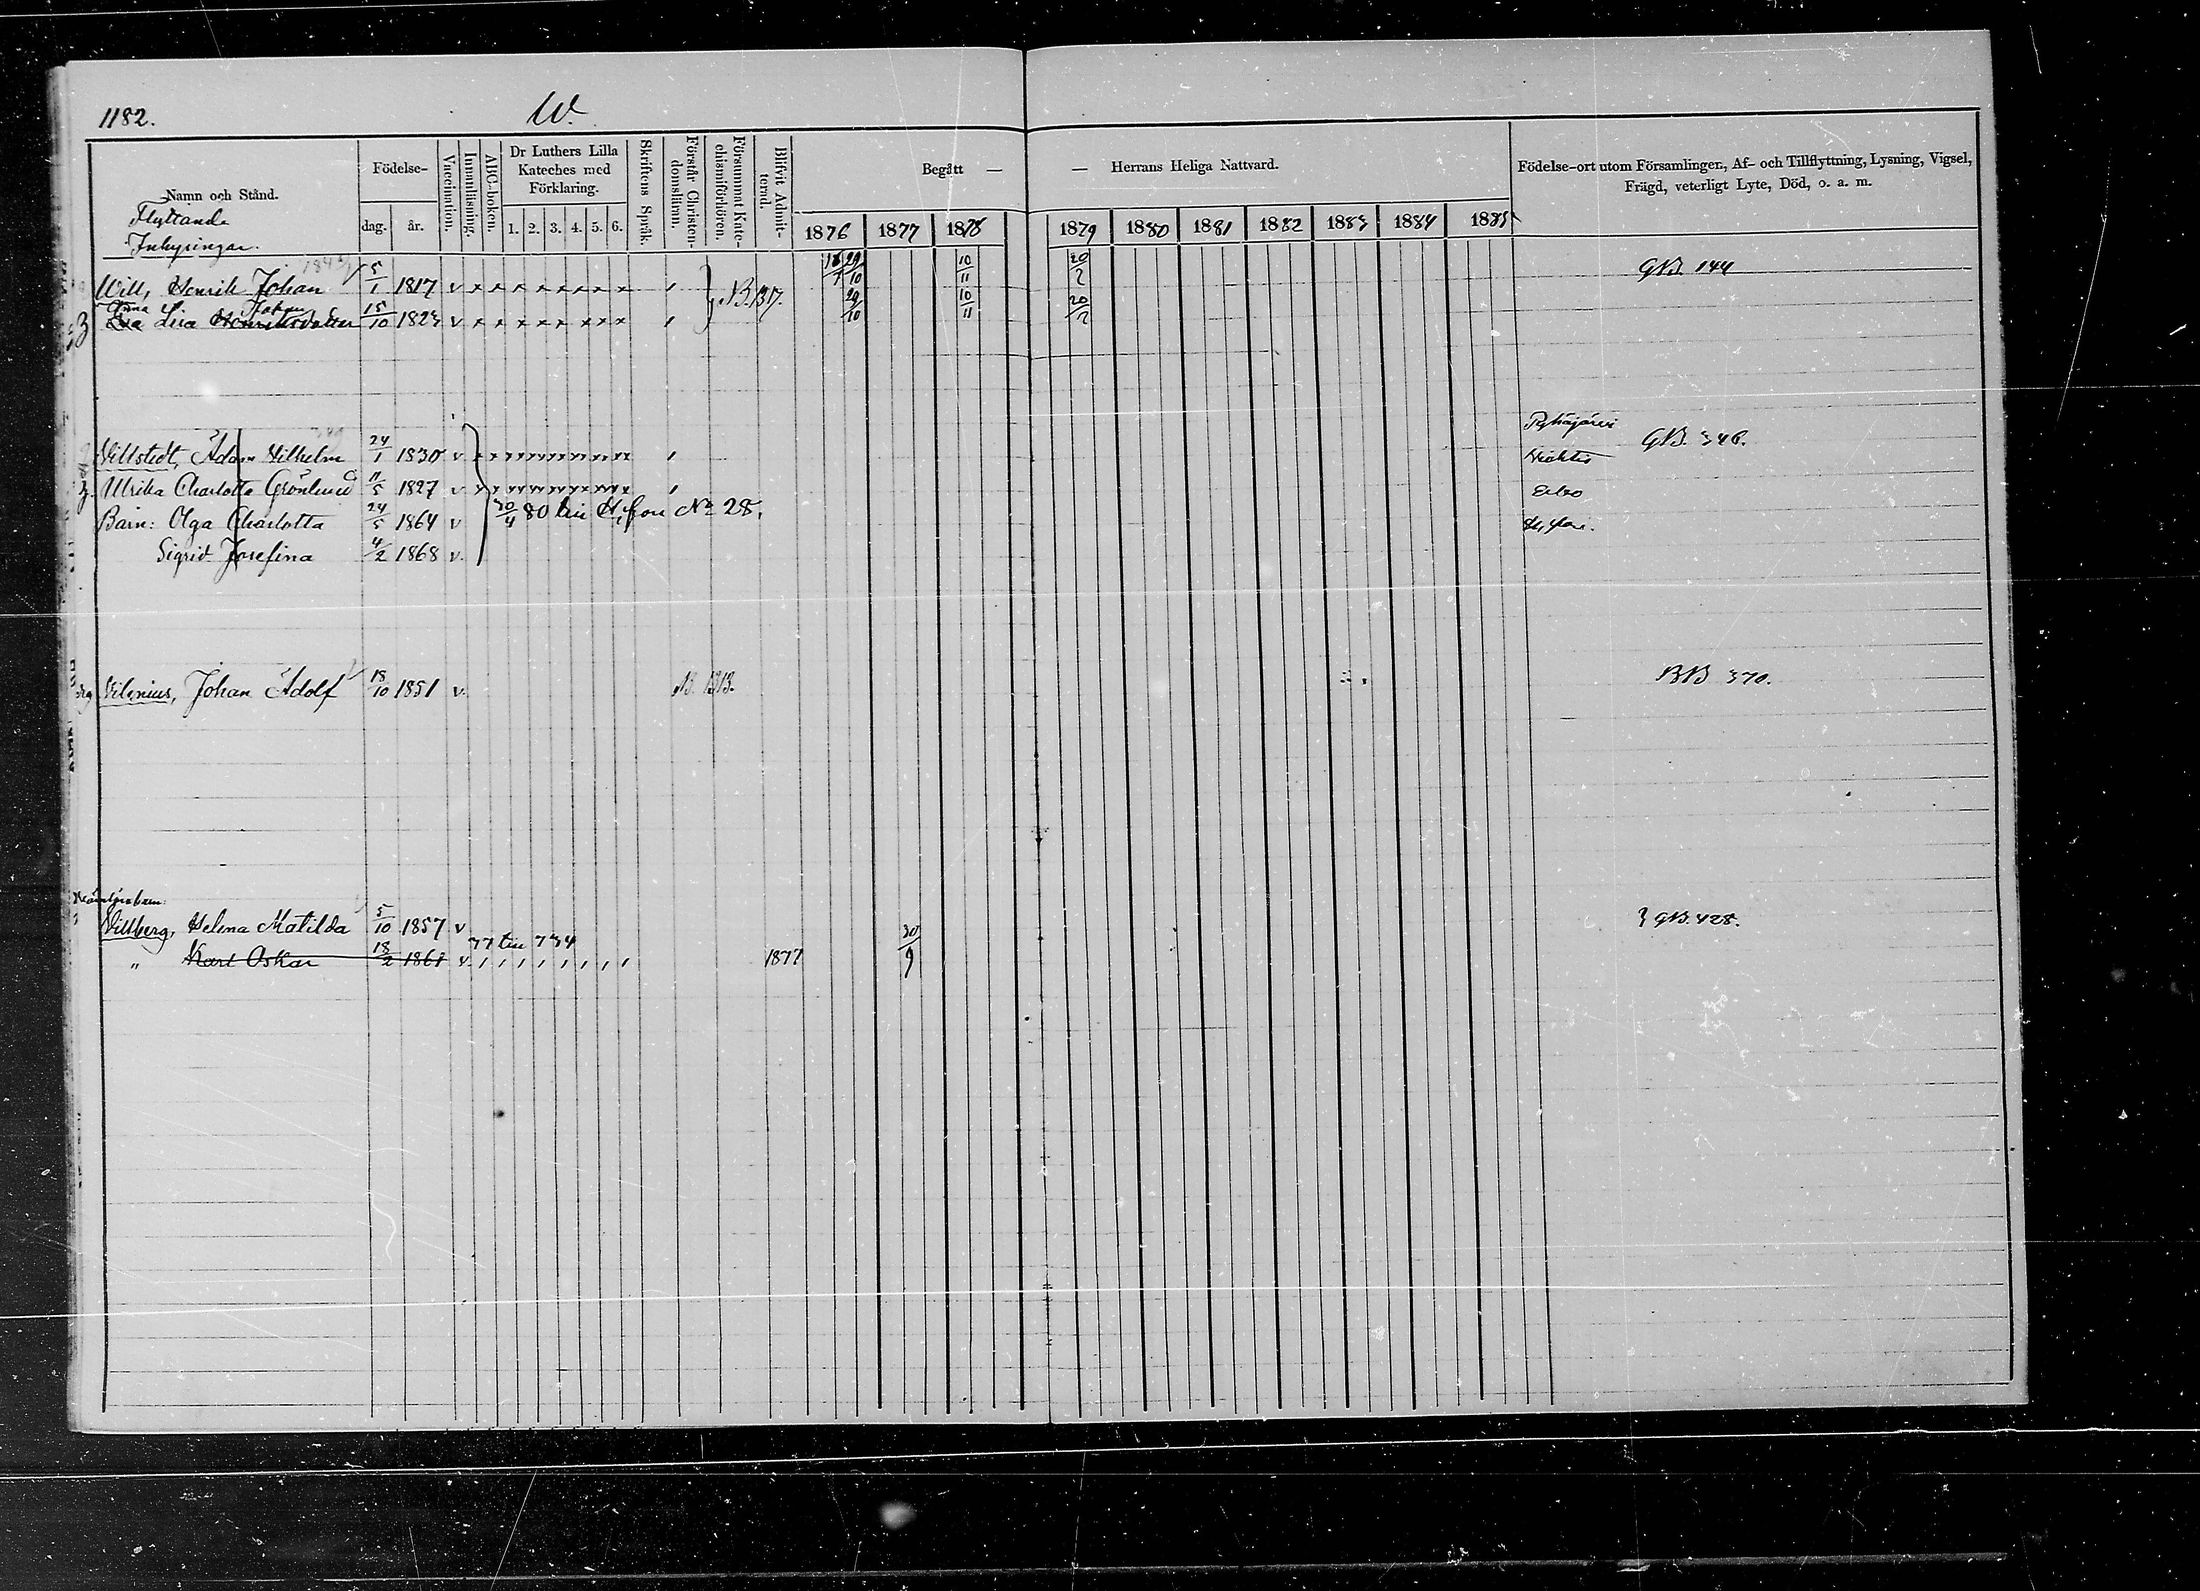 1182. W.
Namn och Stånd.
Flyttande
Inhysingar.
Födelse-
dag. år.
Vaccination.
Innanläsning.
ABC-boken.
Dr Luthers Lilla Kateches med Förklaring.
1. 2. 3. 4. 5. 6.
Skriftens Språk.
Förstår Christendomslitan.
Försummat Katechismiförhören.
Blifvit Admitterad.
Begått — — Herrans Heliga Nattvard.
1876 1877 1878 1879 1880 1881 1882 1883 1884 1885
Födelse-ort utom Församlingen, Af- och Tillflyttning, Lysning, Vigsel,
Frägd, veterligt Lyte, Död, o. a. m.
Will, Henrik Johan 5/1 1817 v 29/10 10/11 20/2 GB. 144
B. 1317.
Anna Johan
Eva Lisa Henriksdotter 15/10 1823 v 29/10 10/11 20/2
Pyhäjärvi
Villstedt, Adam Vilhelm 24/1 1830 v GB. 346.
Ulrika Charlotta Grönlund 11/5 1827 v Esbo
Barn: Olga Charlotta 24/5 1864 v 30/4 80 till H:fors No 28. H:fors.
Sigrid Josefina 4/2 1868 v.
Vilenius, Johan Adolf 18/10 1851 v. B. 1313. BB 370.
Villberg, Helena Matilda 5/10 1857 v GB. 428.
77 till 734
„ Karl Oskar 18/2 1861 v 1877 30/9